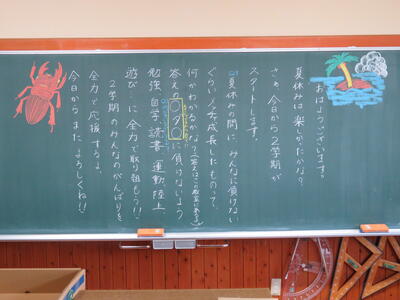 おはようございます。
夏休みは楽しかったかな？
さぁ、今日から2学期が
スタートします。
夏休みの間に みんなに負けない
ぐらい／〇が成長したものって、
何かわかるかな？
答えの〇ダ〇に負けないよう
勉強、自学、読書、運動、陸上
遊び…に 全力で取り組もう!!
2学期のみんなのがんばりを
全力で応援するよ。
今日から またよろしくね!!